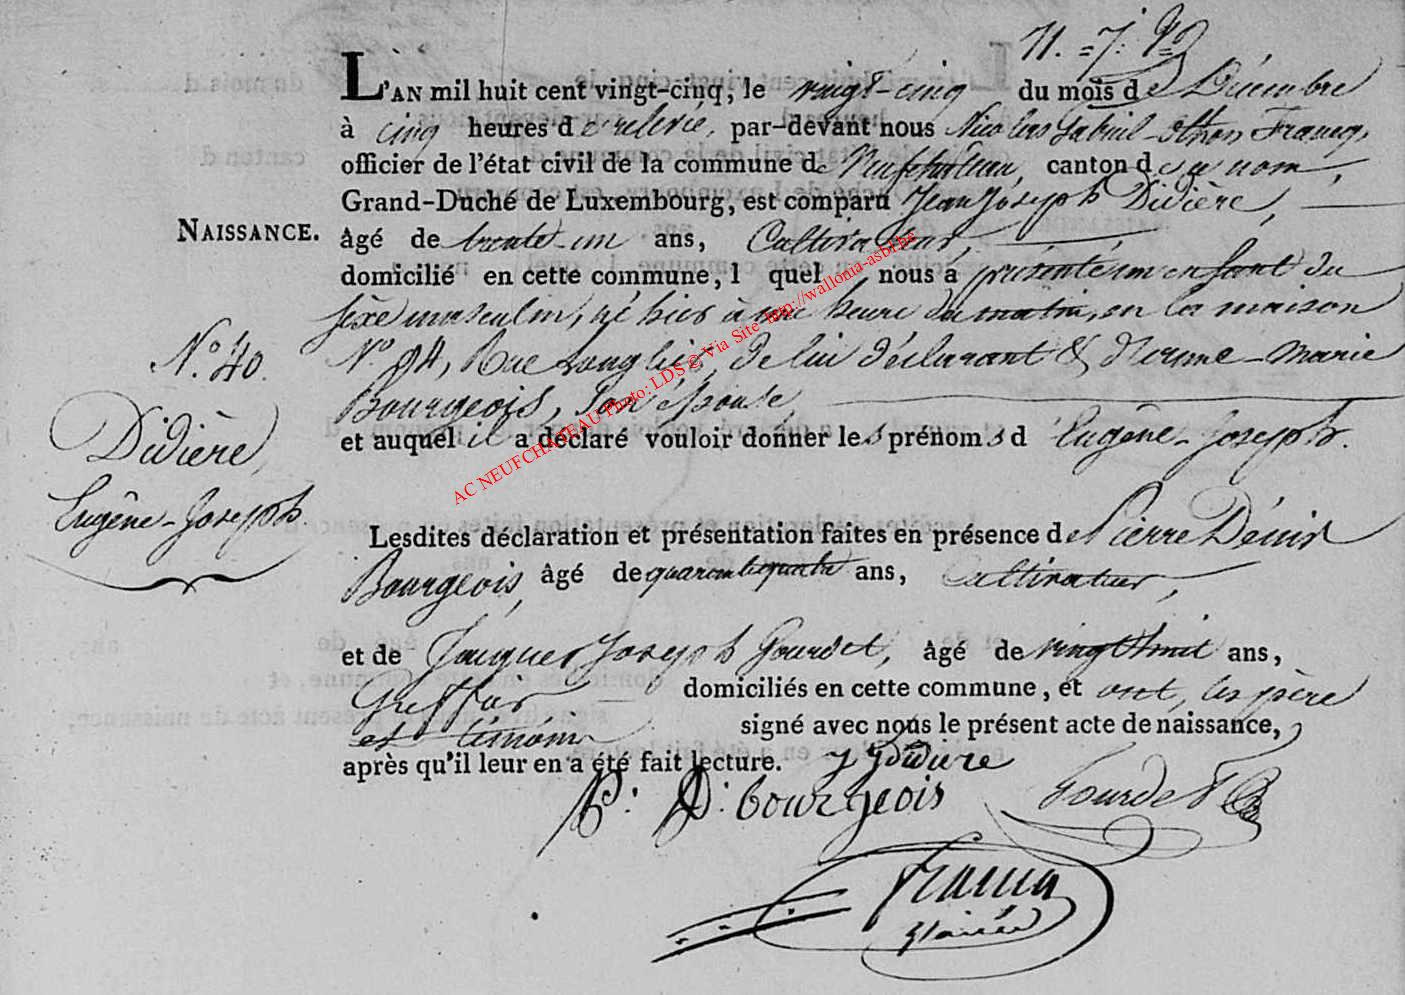 11. = 7.
L'AN mil huit cent vingt-cinq, le vingt-cinq du mois de Décembre
à cinq heures de relevée, par-devant nous Nicolas Gabriel-Othon Francq,
officier de l'état civil de la commune de Neufchateau, canton de ce nom,
Grand-Duché de Luxembourg, est comparu Jean Joseph Didière,
NAISSANCE.
âgé de trente-un ans, Cultivateur,
domicilié en cette commune, l quel nous a présenté un enfant du
sèxe masculin, né hier à une heure du matin, en la maison
N.º 40.
Nº 84, Rue Longlier, de lui déclarant & d'Anne-Marie
Bourgeois, son épouse,
et auquel il a déclaré vouloir donner les prénoms d'Eugêne-Joseph.
Didière,
Eugêne-Joseph.
Lesdites déclaration et présentation faites en présence de Pierre Dénis
Bourgeois, âgé de quarante ans, Cultivateur,
et de Jacques Joseph Gourdet, âgé de vingt huit ans,
Greffier domiciliés en cette commune, et ont, les père
et témoins signé avec nous le présent acte de naissance,
après qu'il leur en a été fait lecture. J J Didiere
P: D: bourgeois
Gourdet
Francq
AC NEUFCHATEAU Photo: LDS © Via Site http://wallonia-asbl.be